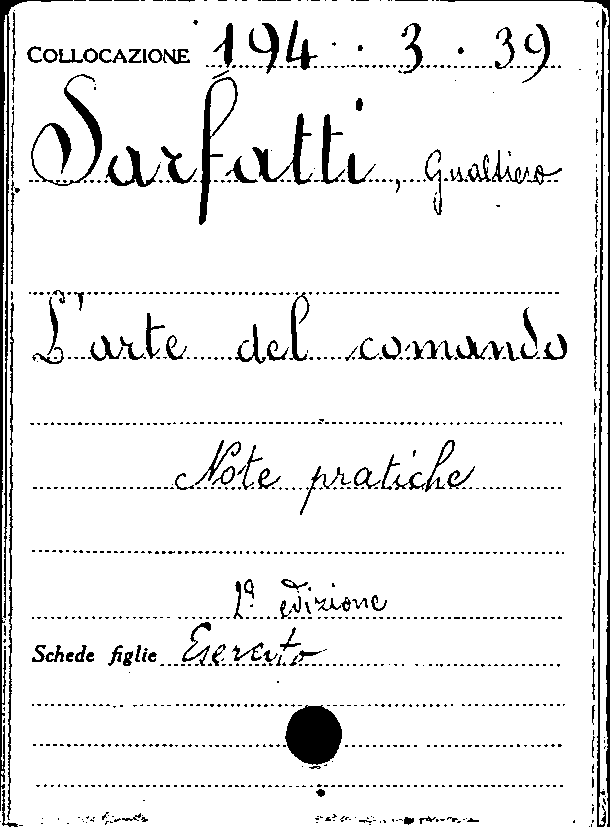 COLLOCAZIONE 194 · 3 · 39
Sarfatti, Gualtiero
L'arte del comando
Note pratiche
2ª edizione
Schede figlie Esercito